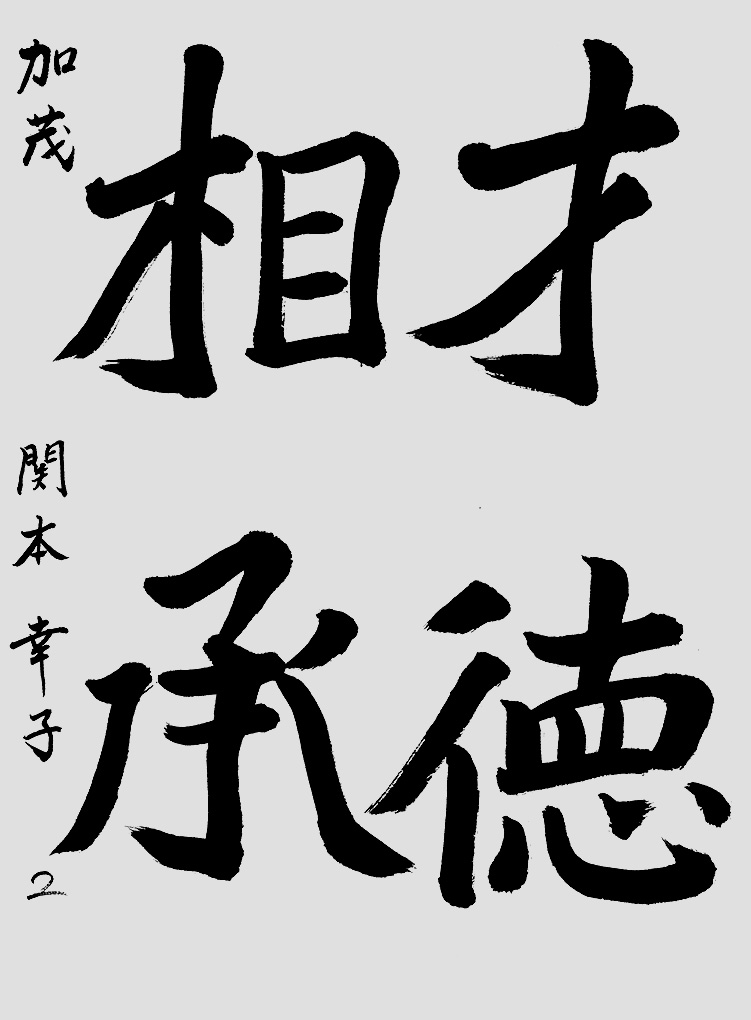 才徳
相承
加茂 関本 幸子 2